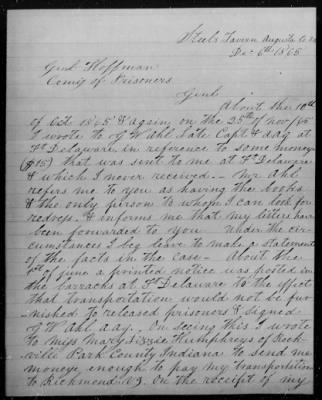 Steels Tavern Augusta Co Va
Dec 6th 1865
Genl Hoffman
Comig of Prisoners
Genl
About the 10th
of Oct 1865 & again on the 25th of Nov /65
I wrote to G W Ahl Late Capt & aag at
Ft Delaware in reference to some money
($15) that was sent to me at Ft Delaware
& which I never received. Mr Ahl
refers me to you as having the books
& the only person to whom I can look for
redress. & informs me that my letters have
been forwarded to you. Under the cir-
cumstances I beg leave to make a statement
of the facts in the case – About the
1st of June a printed notice was posted in
the barracks at Ft Delaware to the effect
that transportation would not be fur-
nished to released prisoners & signed
G W Ahl aag. On seeing this I wrote
to Miss Mary Lizzie Humphreys of Rock-
ville Park County Indiana to send me
money enough to pay my transportation
to Richmond Va. On the receipt of my